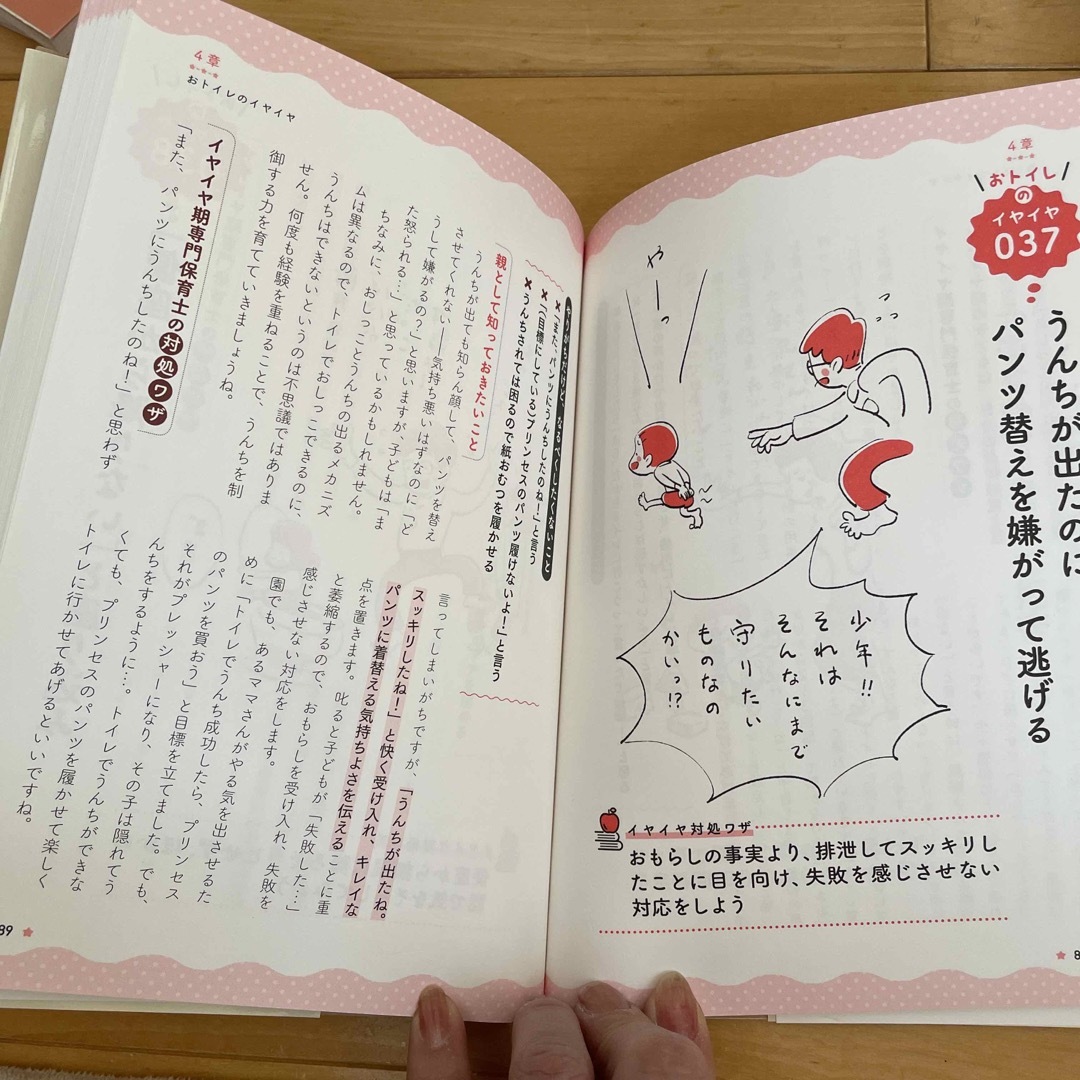 4章
おトイレ
の
イヤイヤ
037
うんちが出たのに
パンツ替えを嫌がって逃げる
やーっ
少年!!
それは
そんなにまで
守りたい
ものなの
かいっ!?
イヤイヤ対処ワザ
おもらしの事実より、排泄してスッキリし
たことに目を向け、失敗を感じさせない
対応をしよう
8
4章
おトイレのイヤイヤ
やりがちだけど、なるべくしたくないこと
✖「また、パンツにうんちしたのね!」と言う
✖「(目標にしている)プリンセスのパンツ履けないよ!」と言う
✖うんちされては困るので紙おむつを履かせる
親として知っておきたいこと
うんちが出ても知らん顔して、パンツを替え
させてくれない――気持ち悪いはずなのに「ど
うして嫌がるの?」と思いますが、子どもは「ま
た怒られる…」と思っているかもしれません。
ちなみに、おしっことうんちの出るメカニズ
ムは異なるので、トイレでおしっこできるのに、
うんちはできないというのは不思議ではありま
せん。何度も経験を重ねることで、うんちを制
御する力を育てていきましょうね。
イヤイヤ期専門保育士の対処ワザ
「また、パンツにうんちしたのね!」と思わず
言ってしまいがちですが、「うんちが出たね。
スッキリしたね!」と快く受け入れ、キレイな
パンツに着替える気持ちよさを伝えることに重
点を置きます。叱ると子どもが「失敗した…」
と萎縮するので、おもらしを受け入れ、失敗を
感じさせない対応をします。
園でも、あるママさんがやる気を出させるた
めに「トイレでうんち成功したら、プリンセス
のパンツを買おう」と目標を立てました。でも、
それがプレッシャーになり、その子は隠れてう
んちをするように…。トイレでうんちができな
くても、プリンセスのパンツを履かせて楽しく
トイレに行かせてあげるといいですね。
89